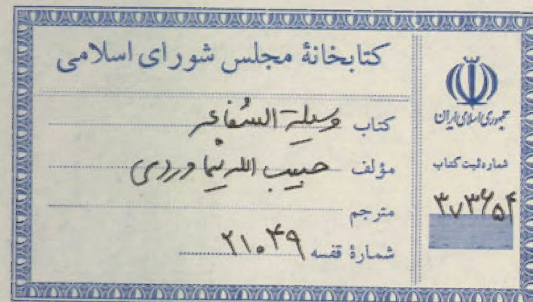 کتابخانهٔ مجلس شورای اسلامی
کتاب وسیلة الشفاعه
مؤلف حبیب الله نیماوردی
مترجم
شمارهٔ قفسه ۲۱۰۴۹
جمهوری اسلامی ایران
شماره ثبت کتاب
۳۷۳۶۵۴